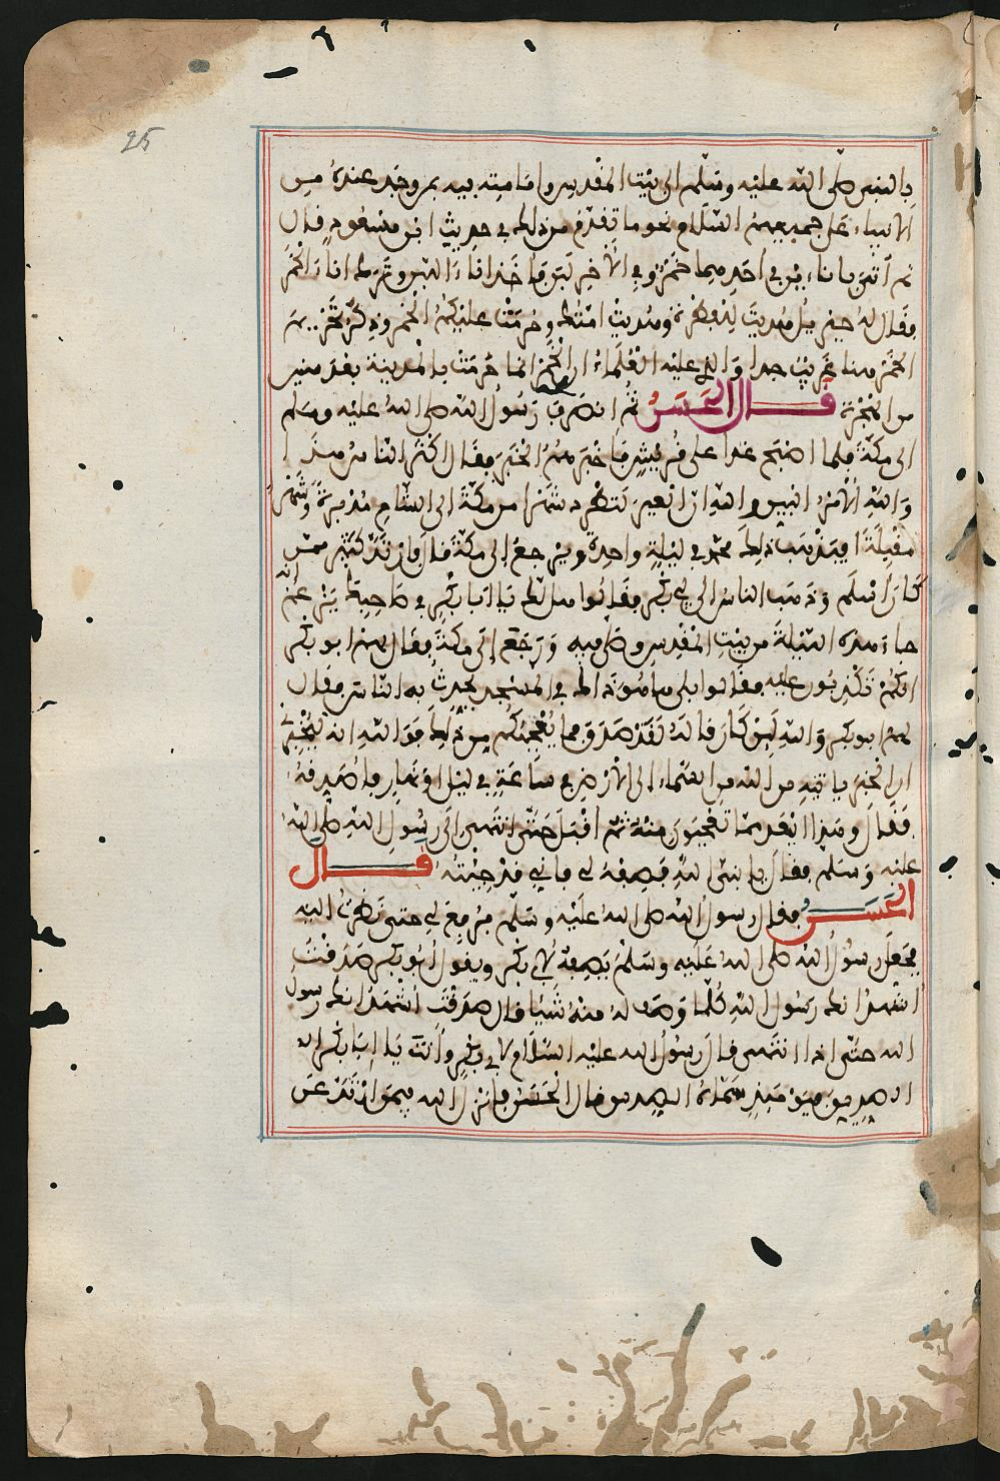 25
بالنبي صلى الله عليه وسلم الى بيت المقدس وامامته فيه بمن وجد عنده من
الانبياء على جميعهم السلام نحو ما تقدم من ذلك في حديث ابن مسعود قال
ثم أتي باناءين في أحدهما خمر وفي الأخر لبن فأخذ اناء اللبن وترك اناء الخمر
فقال له جبريل هديت للفطرة وهديت امتك وحرمت عليكم الخمر وذكر تحريم
الخمر هنا غريب جدا والذي عليه العلماء ان الخمر انما حرمت بالمدينة بعد سنين
من الهجرة قال الحسن ثم انصرف رسول الله صلى الله عليه وسلم
الى مكة فلما اصبح غدا على قريش فأخبرهم الخبر فقال اكثر الناس هذا
والله الأمر البين والله ان العير لتطرد شهرا من مكة الى الشام مدبرة وشهرا
مقبلة افيذهب ذلك محمد في ليلة واحدة ويرجع إلى مكة قال فارتد كثير ممن
كان أسلم وذهب الناس الى أبي بكر فقالوا هل لك يا أبا بكر في صاحبك يزعم انه
جاء هذه الليلة من بيت المقدس وصلى فيه ورجع إلى مكة فقال لهم ابو بكر
انكم تكذبون عليه فقالوا بلى ها هو ذاك في المسجد يحدث به الناس فقال
لهم ابو بكر والله لئن كان قاله لقد صدق فما يعجبكم من ذلك فوالله انه ليخبرني
ان الخبر ياتيه من الله من السماء الى الأرض في ساعة في ليل او نهار فأصدقه
فقال وهذا ابعد مما تعجبون منه ثم اقبل حتى انتهى الى رسول الله صلى الله
عليه وسلم فقال يا نبي الله فصفه لي فاني قد جئته قال
الحسن فقال رسول الله صلى الله عليه وسلم فرفع لي حتى نظرت اليه
فجعل رسول الله صلى الله عليه وسلم يصفه لأبي بكر ويقول أبو بكر صدقت
اشهد انك رسول الله كلما وصف له منه شيئا قال صدقت اشهد انك رسول
الله حتى اذا انتهى قال رسول الله عليه السلام لابي بكر وأنت يا ابا بكر
الصديق فيومئذ سماه الصديق قال الحسن فانزل الله فيمن ارتد عن